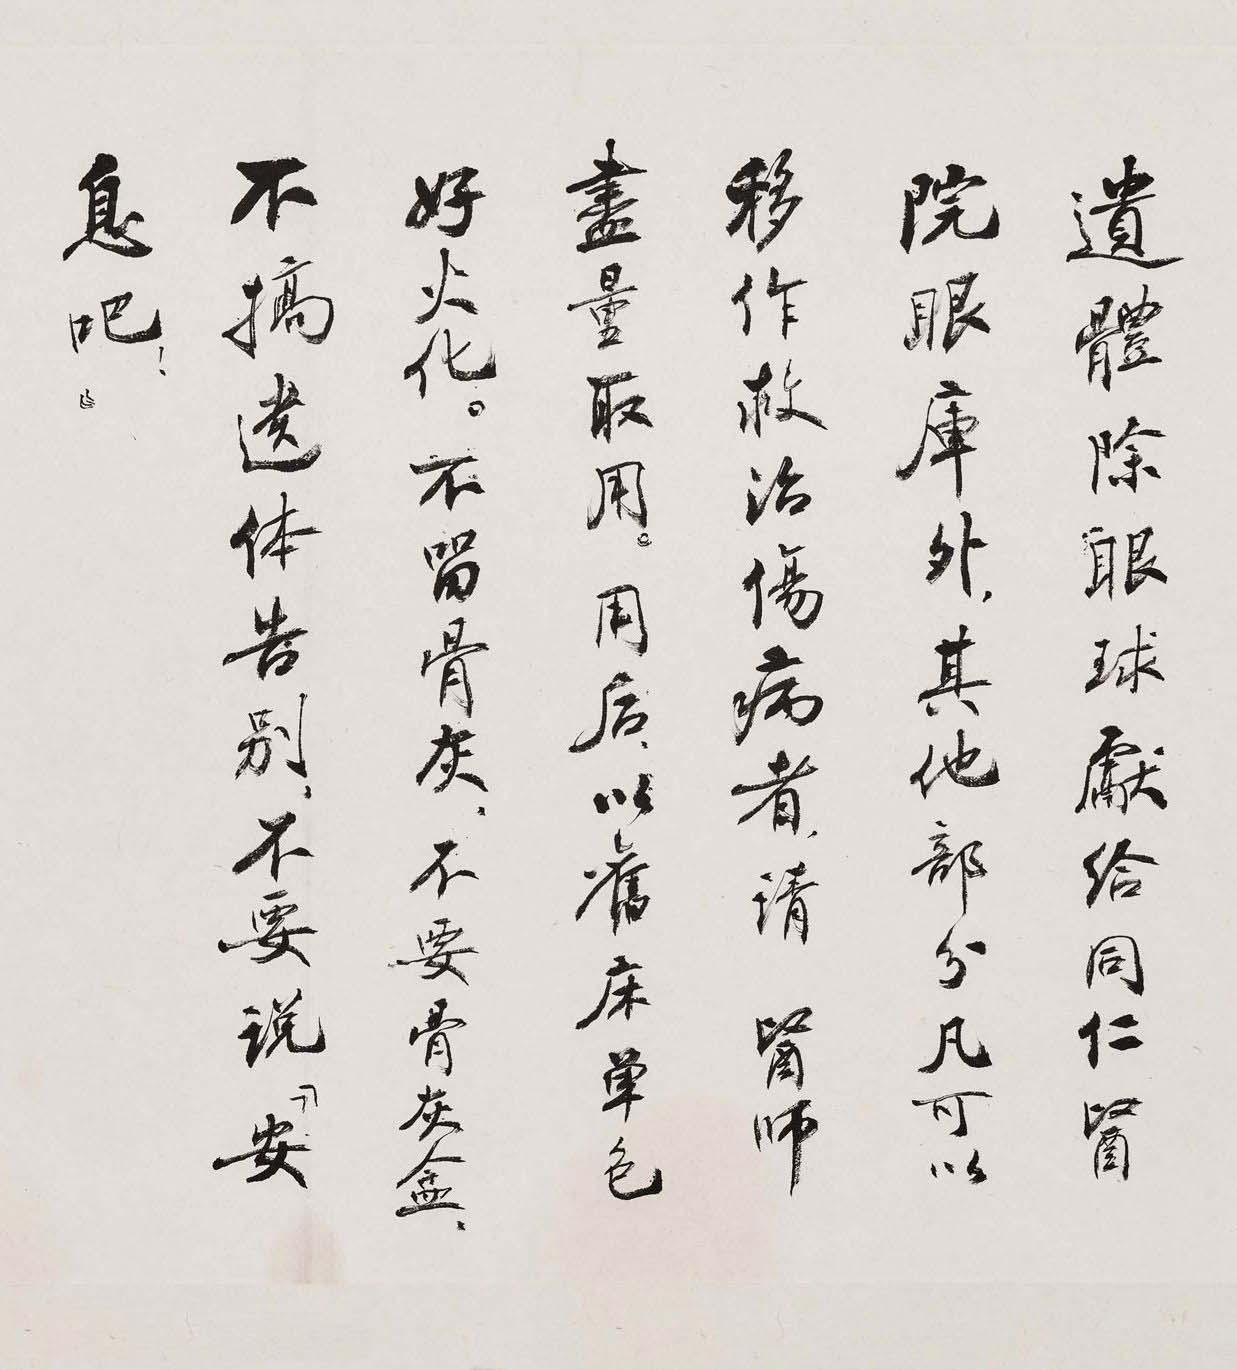 遺體除眼球獻給同仁醫
院眼庫外，其他部分凡可以
移作救治傷病者，请 醫师
盡量取用。用后，以舊床单包
好火化。不留骨灰，不要骨灰盒，
不搞遗体告别，不要说「安
息吧！」